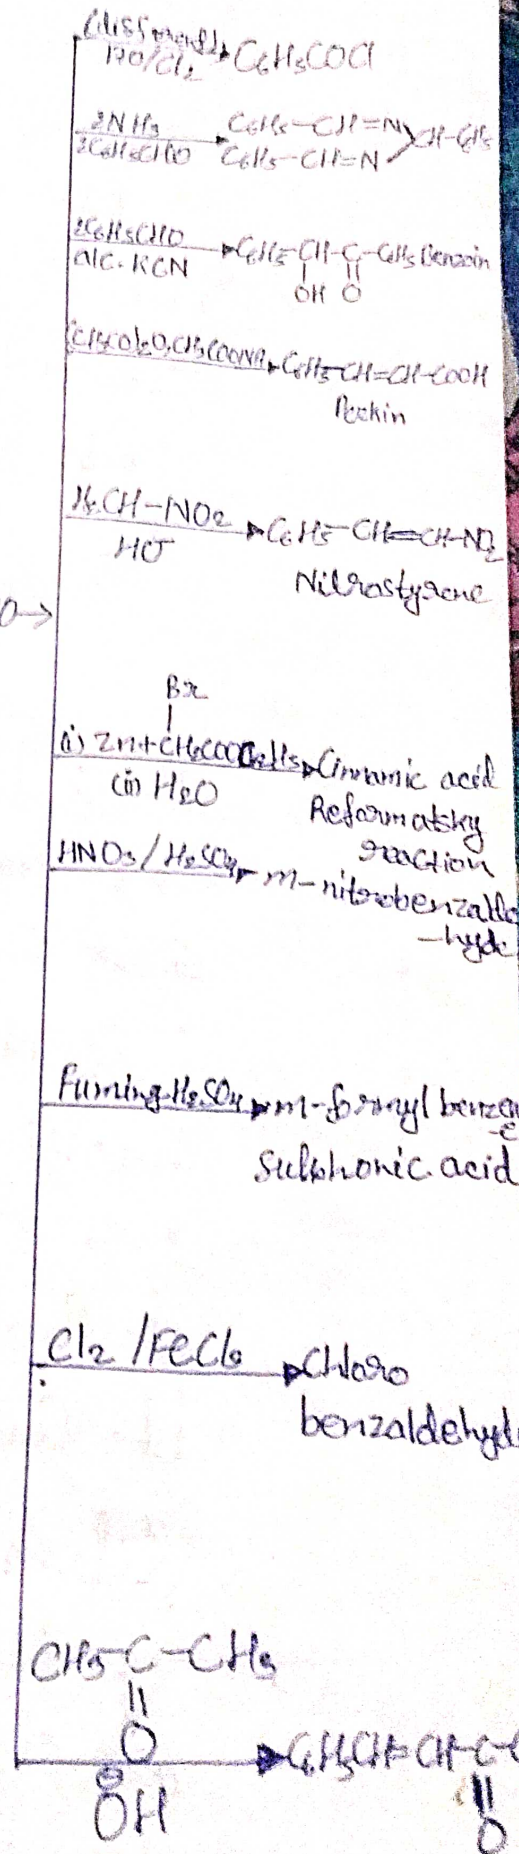 170/Cl₂ → C6H5COCl
2NH3
2C6H5CHO → C6H5-CH=N
C6H5-CH=N
CH-C6H5
2C6H5CHO
alc. KCN → C6H5-CH-C-C6H5 Benzoin
OH O
(CH3CO)2O, CH3COONa → C6H5-CH=CH-COOH
Perkin
H3CH-NO2
HO⁻ → C6H5-CH=CH-NO2
Nitrostyrene
O→
Br
(i) Zn+CH2COOC2H5 → Cinnamic acid
(ii) H2O
Reformatsky
reaction
HNO3/H2SO4 → m-nitrobenzalde
-hyde
Fuming H2SO4 → m-formyl benzen
-e
Sulphonic acid
Cl2/FeCl3 → Chloro
benzaldehyd
CH3-C-CH3
||
O → C6H5CH=CH-C-
⊖
OH
||
O